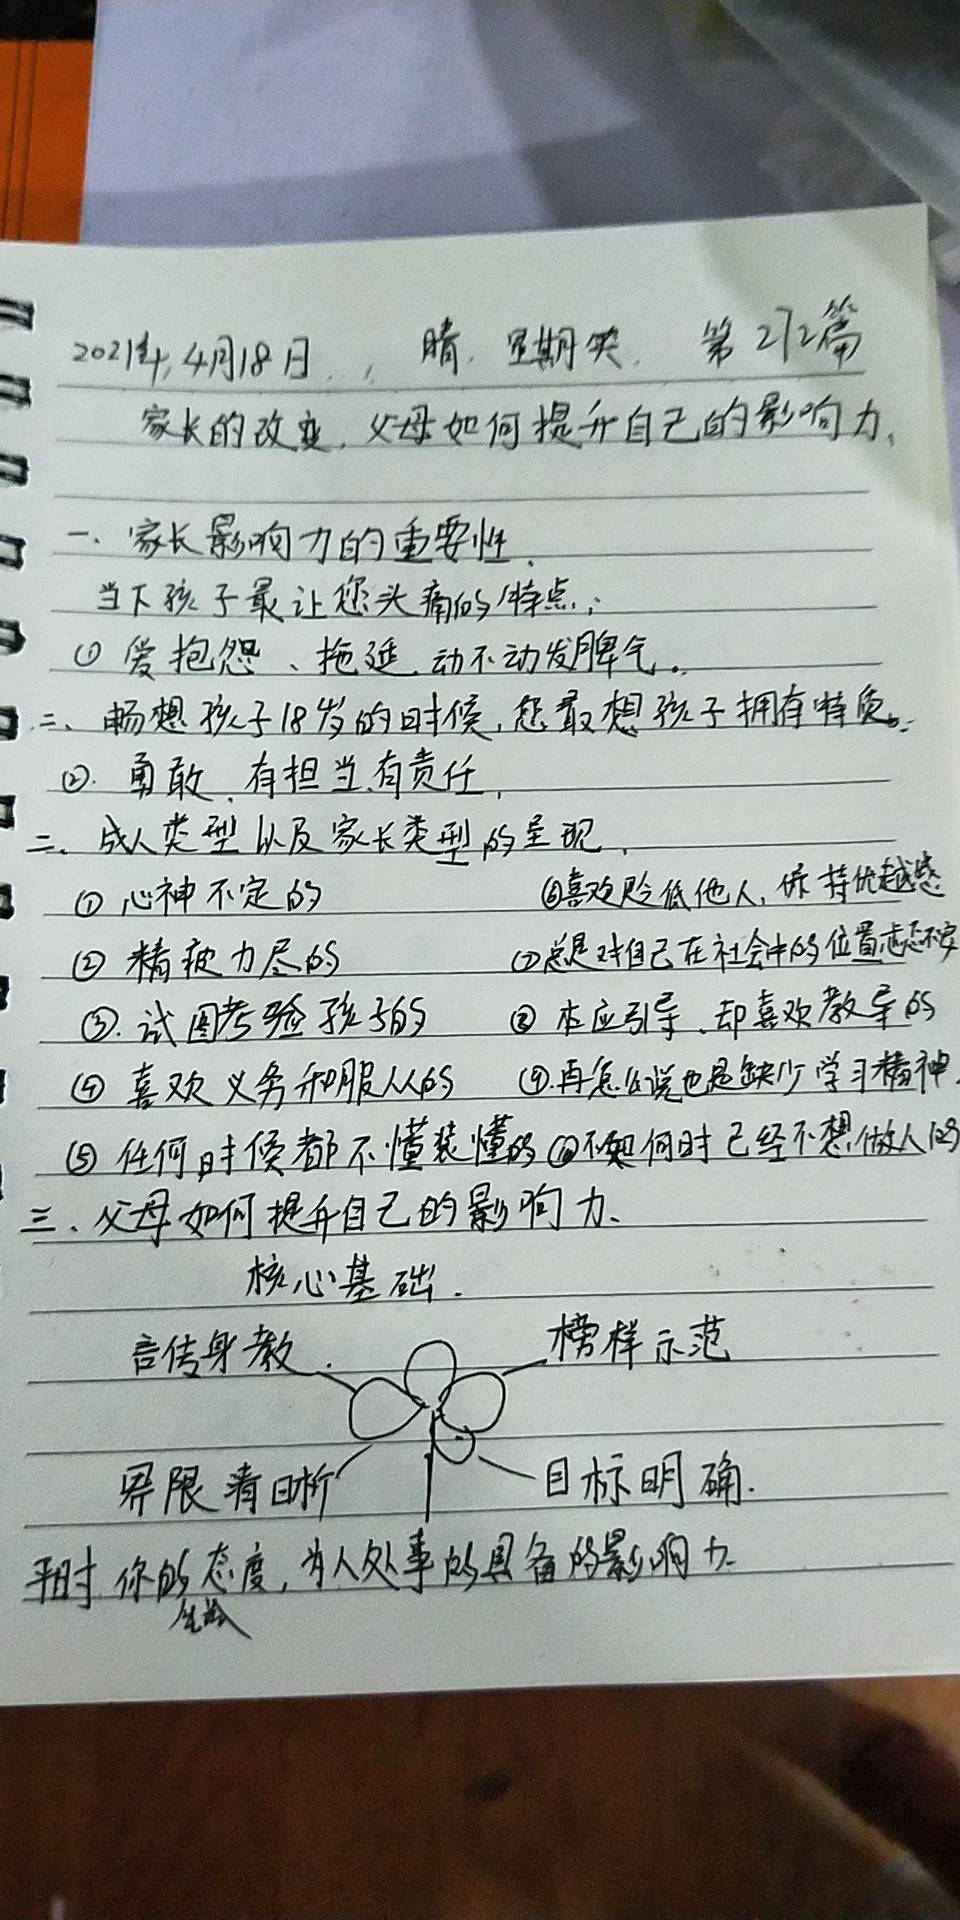 2021年,4月18日,,晴.星期天.第272篇
家长的改变,父母如何提升自己的影响力、
一、家长影响力的重要性、
当下孩子最让您头痛的特点;
① 爱抱怨、拖延,动不动发脾气。
二、畅想孩子18岁的时候,您最想孩子拥有特质。
②. 勇敢、有担当、有责任、
二、成人类型以及家长类型的呈现、
① 心神不定的 ⑥喜欢贬低他人,保持优越感
② 精疲力尽的 ⑦总是对自己在社会中的位置忐忑不安
③.试图考验孩子的 ⑧ 本应引导、却喜欢教导的
④ 喜欢义务和服从的 ⑨.再怎么说也是缺少学习精神.
⑤ 任何时候都不懂装懂的 ⑩不知何时已经不想做人的
三、父母如何提升自己的影响力、
核心基础.
言传身教. 榜样示范
界限清晰 目标明确.
平时你的态度,为人处事的具备的影响力